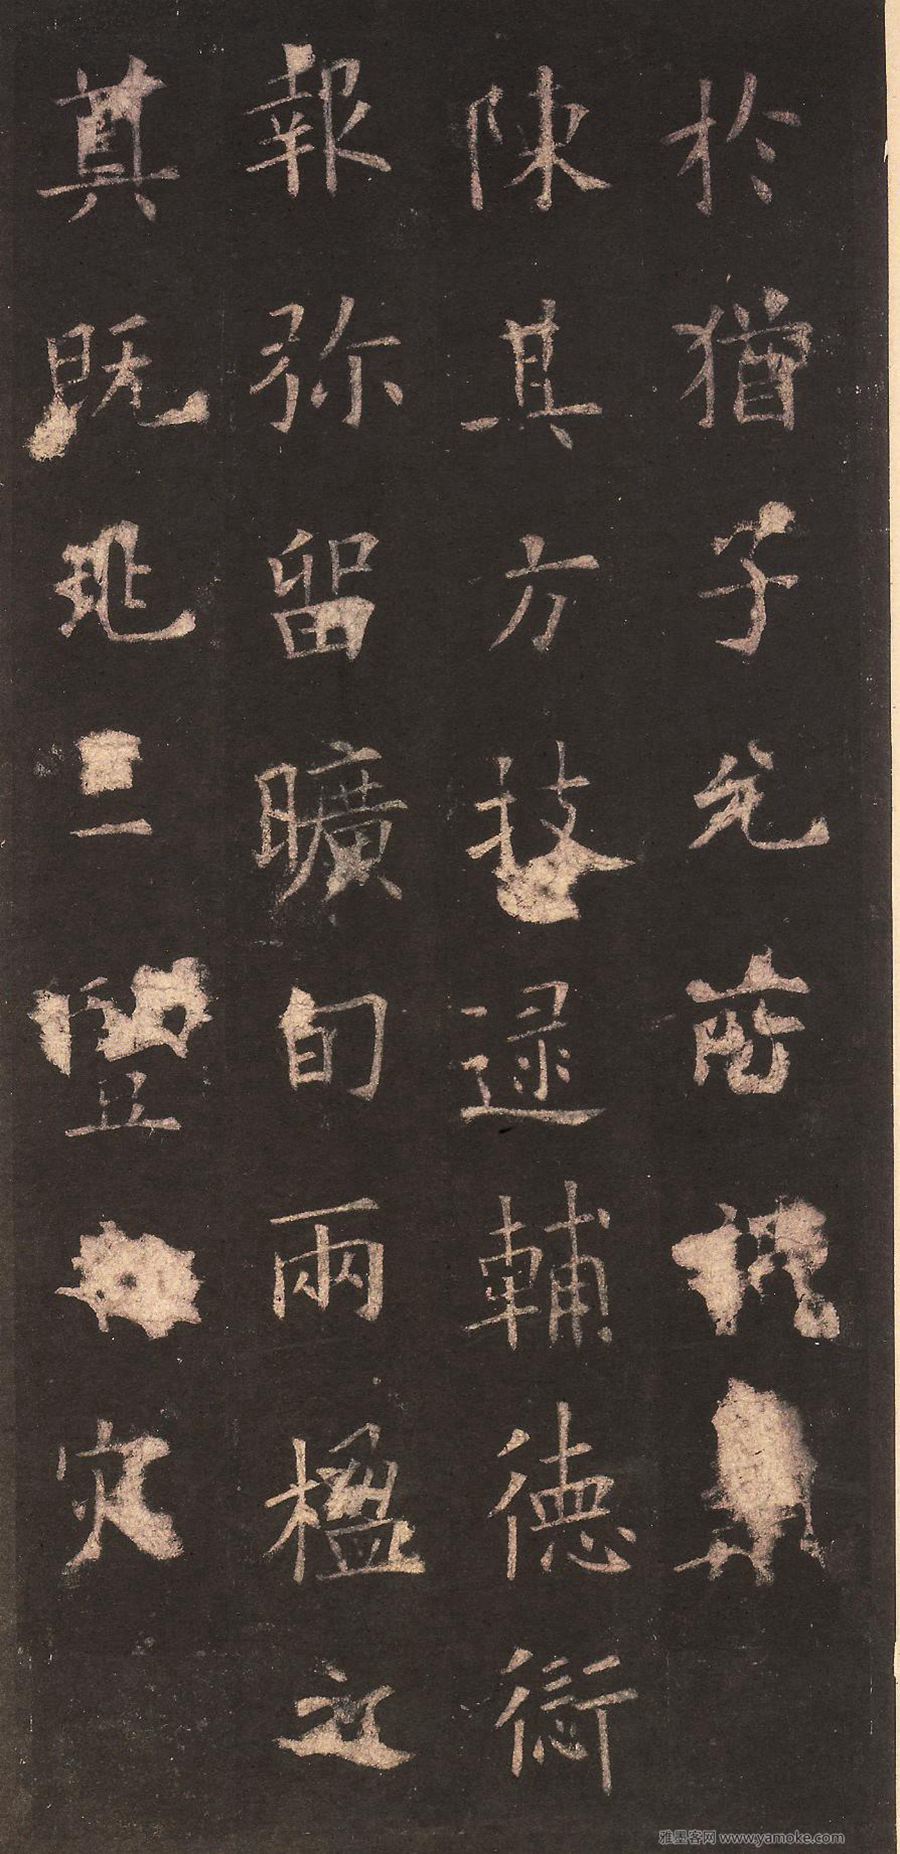 於猶子允
陳其方技逯輔德衒
報弥留曠旬兩楹之
奠既兆二豎灾
雅墨客网 www.yamoke.com